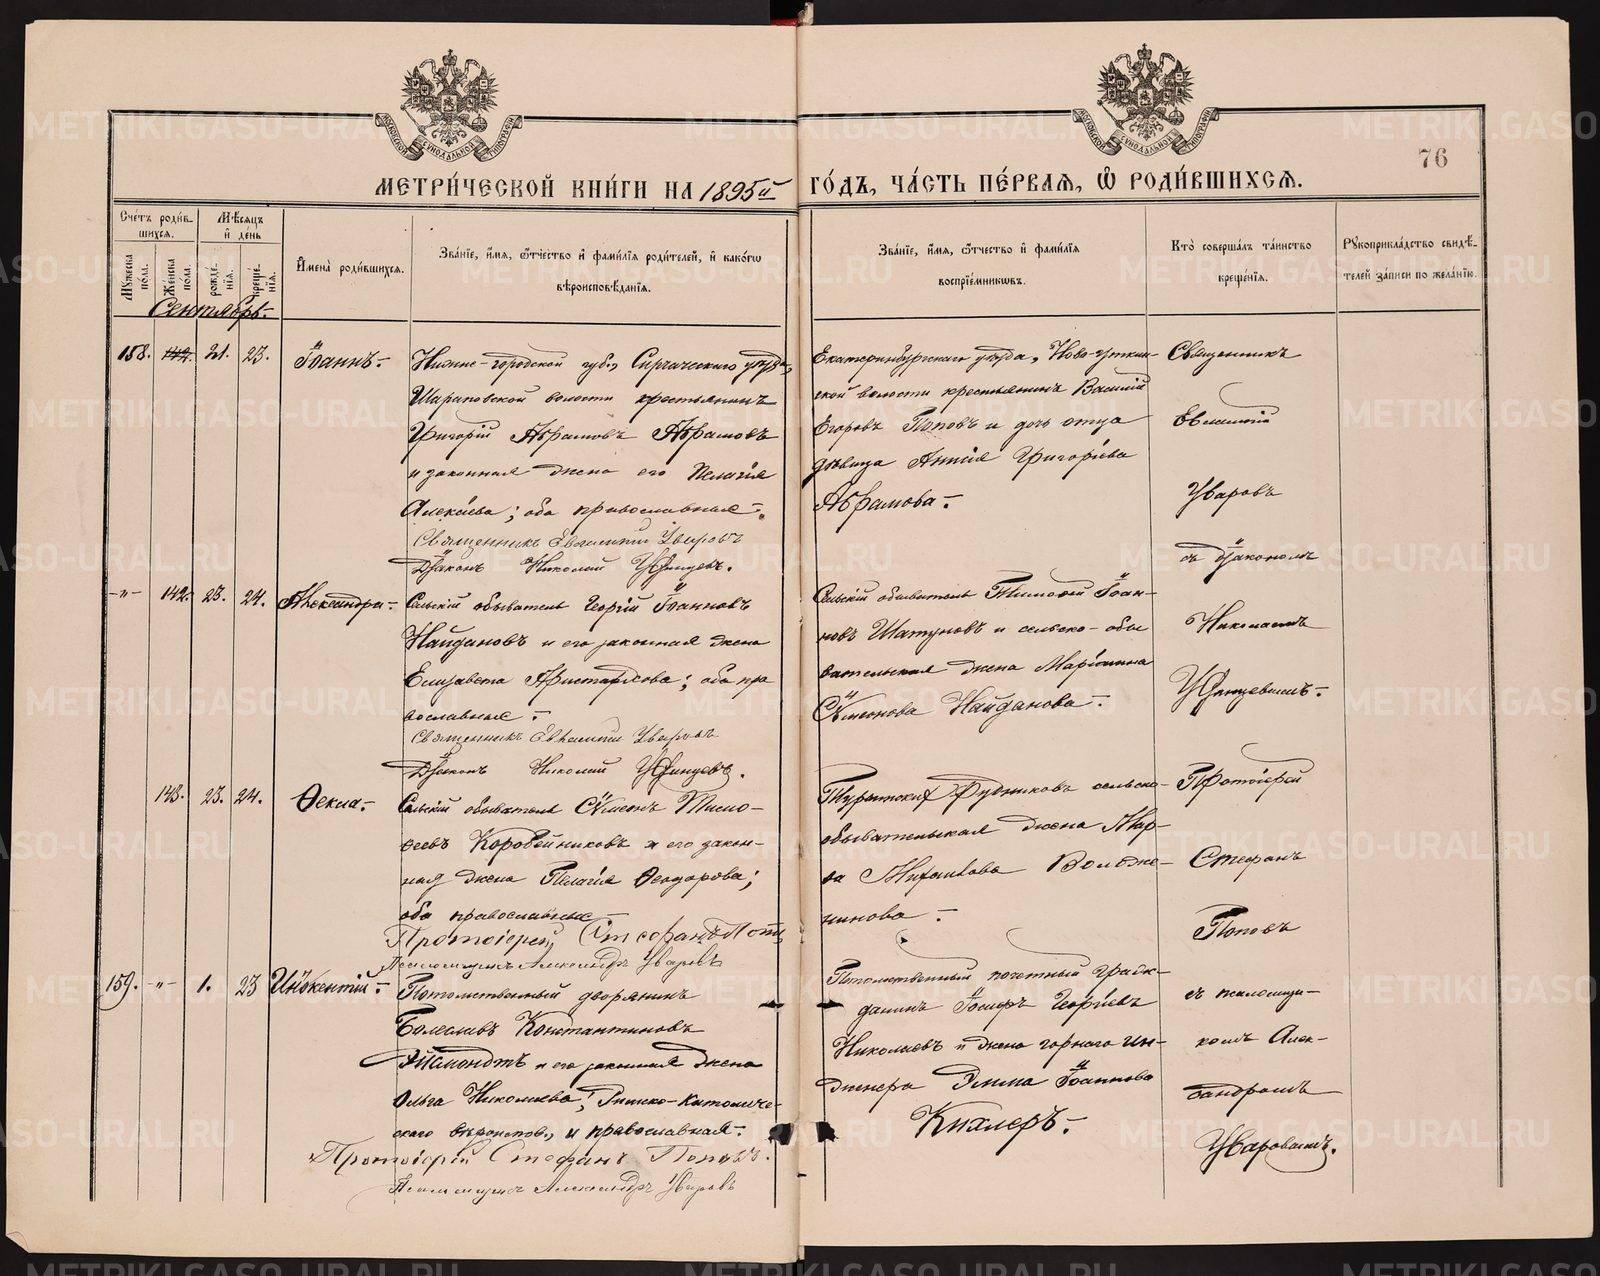 МЕТРИ́ЧЕСКОЙ КНИ́ГИ НА 1895й
ГО́ДЪ, ЧА́СТЬ ПЕ́РВАЯ, Ѽ РОДИ́ВШИХСЯ.
76
МОСКОВСКОЙ СУНОДАЛЬНОЙ ТИПОГРАФІИ
МОСКОВСКОЙ СУНОДАЛЬНОЙ ТИПОГРАФІИ
Сче́тъ роди́в-
шихся.
Мужеска пола.
Же́нска пола.
Мѣсяцъ
и де́нь
рожде́-нія.
креще́-нія.
И҆мена̀ роди́вшихся.
Зва́ніе, и҆́мя, ѻ҆́тчество и҆ фами́лія роди́телей, и҆ како́гѡ
вѣроисповѣ́данія.
Зва́ніе, и҆́мя, ѻ҆́тчество и҆ фами́лія
воспріе́мниковъ.
Кто̀ соверша́лъ та́инство
креще́нія.
Рꙋкоприкла́дство свидѣ́-
телей за́писи по жела́нію.
Сентябрь.
158. 142. 21. 23. Іоаннъ.-
Нижне-городской губ., Сергачскаго уѣзда,
Шараповской волости крестьянинъ
Григорій Абрамовъ Абрамовъ
и законная жена его Пелагія
Алексѣева; оба православные.-
Священникъ Евлампій Уваровъ
Діаконъ Николай Уфинцевъ.
Екатеринбургскаго уѣзда, Ново-уткин-
ской волости крестьянинъ Василій
Егоровъ Поповъ и дочь отца
дѣвица Анисія Григоріева
Абрамова.-
Священникъ
Евлампій
Уваровъ
съ діакономъ
-"- 142. 23. 24. Александра.-
Сельскій обыватель Георгій Іоанновъ
Найдановъ и его законная жена
Елизавета Аристархова; оба пра
вославные.-
Священникъ Евлампій Уваровъ
Діаконъ Николай Уфинцевъ.
Сельскій обыватель Тимофей Іоан-
новъ Шатуновъ и сельско-обы
вательская жена Маріанна
Сѵмеонова Найданова.-
Николаемъ
Уфинцевымъ.-
143. 23. 24. Ѳекла.-
Сельскій обыватель Сѵмеонъ
Коробейниковъ и его закон-
ная жена Пелагія Ѳеодорова;
оба православные-
Протоіерей Стефанъ Попов
Псаломщикъ Александръ Уваровъ
Рудниковъ сельско-
обывательская жена Мар-
ѳа Михайлова Волож-
нинова-
Протоіерей
Стефанъ
Поповъ
159. -"- 1. 23 Иннокентій.-
Потомственный дворянинъ
Болеславъ Константиновъ
Эйсмондтъ и его законная жена
Ольга Николаева, Римско-католиче-
скаго вѣроиспов., и православная.-
Протоіерей Стефанъ Поповъ.
Псаломщикъ Александръ Уваровъ
Потомственный почетный граж-
данинъ Іосифъ Георгіевъ
Николаевъ и жена горнаго ин-
женера Эмма Іоаннова
Кихлеръ.-
съ псаломщи-
комъ Алек-
сандромъ
Уваровымъ.